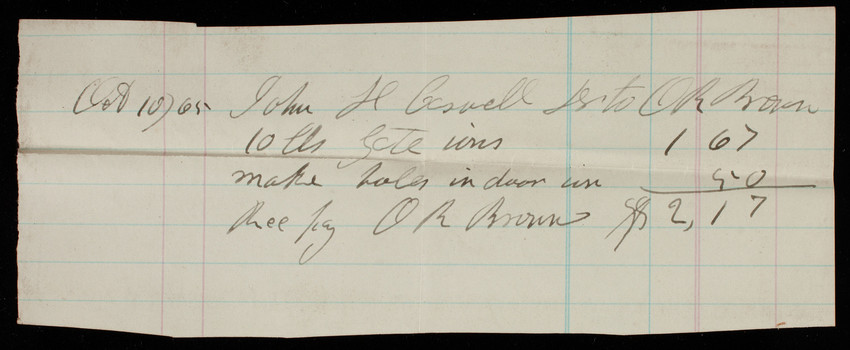 Oct 10/65 John H Caswell Dr to O R Brown
10 lbs gate irns 1 67
make holes in door irn 50
Rec pay O R Brown $ 2,17